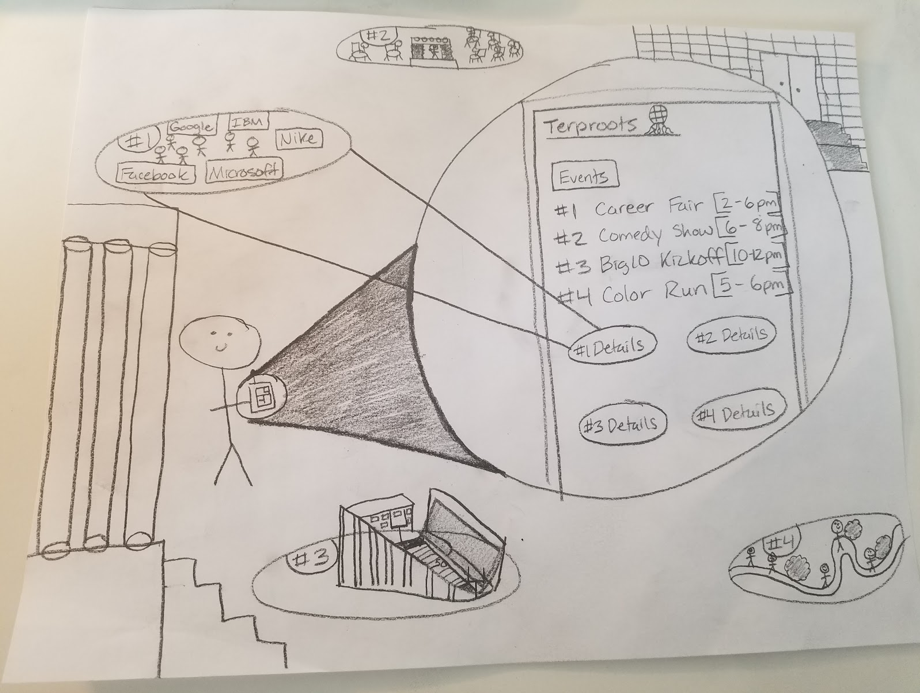 #2
#1
Google
IBM
Nike
Facebook
Microsoft
Terproots
Events
#1 Career Fair [2-6pm]
#2 Comedy Show [6-8pm]
#3 Big10 Kickoff [10-12pm]
#4 Color Run [5-6pm]
#1 Details
#2 Details
#3 Details
#4 Details
#3
#4